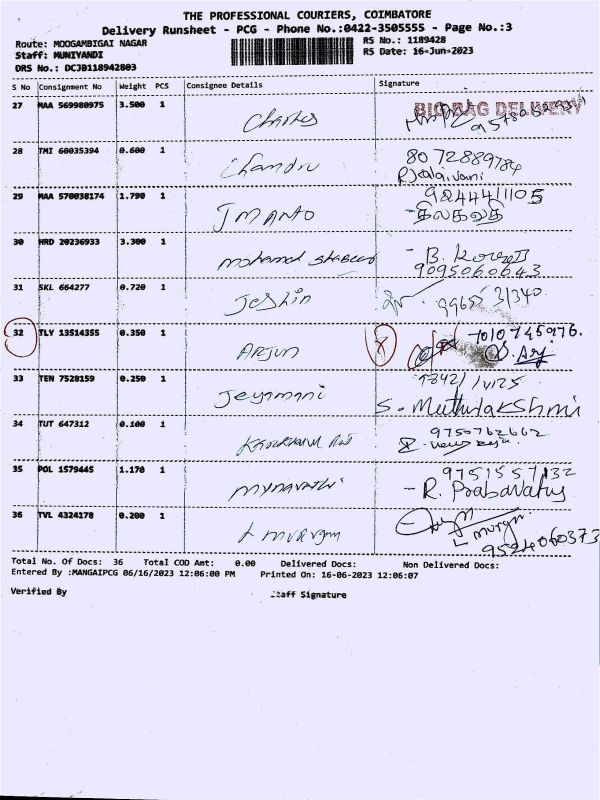 THE PROFESSIONAL COURIERS, COIMBATORE
Delivery Runsheet - PCG - Phone No.:0422-3505555 - Page No.:3
Route: MOOGAMBIGAI NAGAR RS No.: 1189428
Staff: MUNIYANDI RS Date: 16-Jun-2023
DRS No.: DCJB118942803
S No Consignment No Weight PCS Consignee Details Signature
27 MAA 569980975 3.500 1 BIG BAG DELIVERY
Charles
28 TMI 60035394 0.600 1 8072889784
Chandru
29 MAA 570038174 1.790 1 9244411105
J M Anto திலகவதி
30 MRD 20236933 3.300 1 - B.
mohamed 9095060643
31 SKL 664277 0.720 1
Jeshin 31340.
32 TLY 13514355 0.350 1 7010745976.
Arjun
33 TEN 7528159 0.250 1
Jeyamani S. Muthulakshmi
34 TUT 647312 0.100 1 9750762662
35 POL 1579445 1.170 1 9751557132
- R.
36 TVL 4324178 0.200 1
L murugan L murgn
9524060373
Total No. Of Docs: 36 Total COD Amt: 0.00 Delivered Docs: Non Delivered Docs:
Entered By :MANGAIPCG 06/16/2023 12:06:00 PM Printed On: 16-06-2023 12:06:07
Verified By Staff Signature